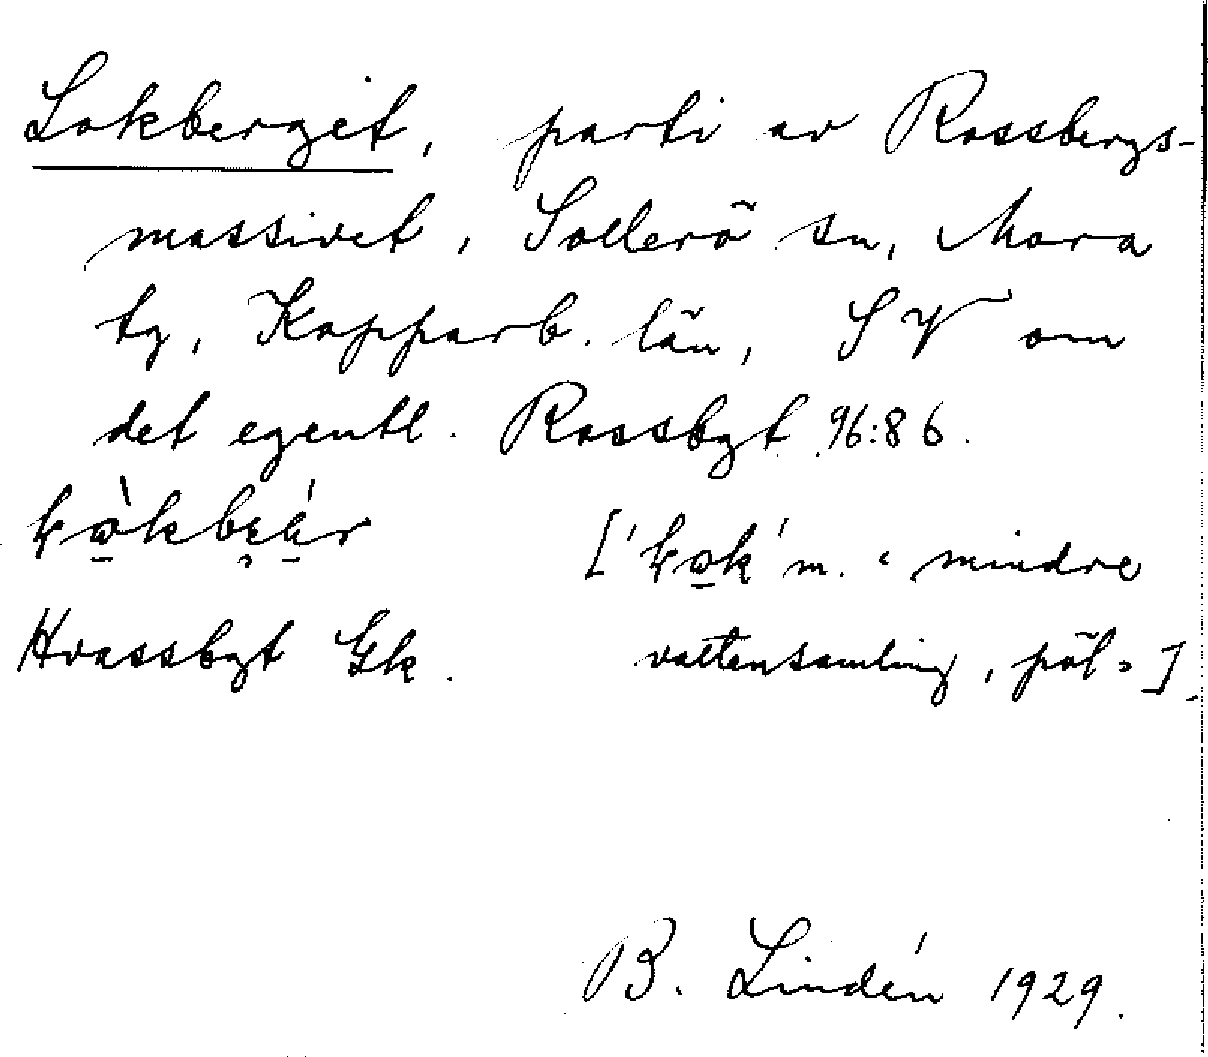 Lokberget, parti av Rossbergs-
massivet, Sollerö sn, Mora
tg, Kopparb. län, SV om
det egentl. Rossbgt 96:86.
[' ' m. "mindre
Hvassbgt Gk. vattensamling, pöl"]
B. Lindén 1929.